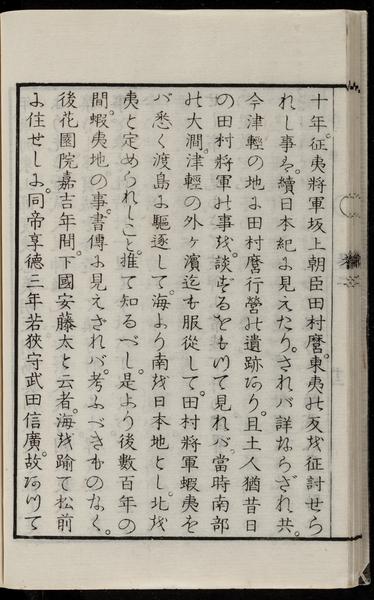 十年。征夷將軍坂上朝臣田村麿。東夷の反を征討せら
れし事ハ。續日本紀に見えたり。されバ詳ならざれ共。
今津輕の地に田村麿行營の遺跡あり。且土人猶昔日
の田村將軍の事を。談ずるをもつて見れバ。當時南部
の大澗。津輕の外ヶ濱迄も服從して。田村將軍蝦夷を
バ悉く渡島に驅逐して。海より南を日本地とし。北を
夷と定められしこと。推て知るべし。是より後數百年の
間。蝦夷地の事。書傳に見えざれバ。考ふべきものなく。
後花園院嘉吉年間。下國安藤太と云者。海を踰て松前
に住せしに。同帝享德三年若狹守武田信廣。故ありて